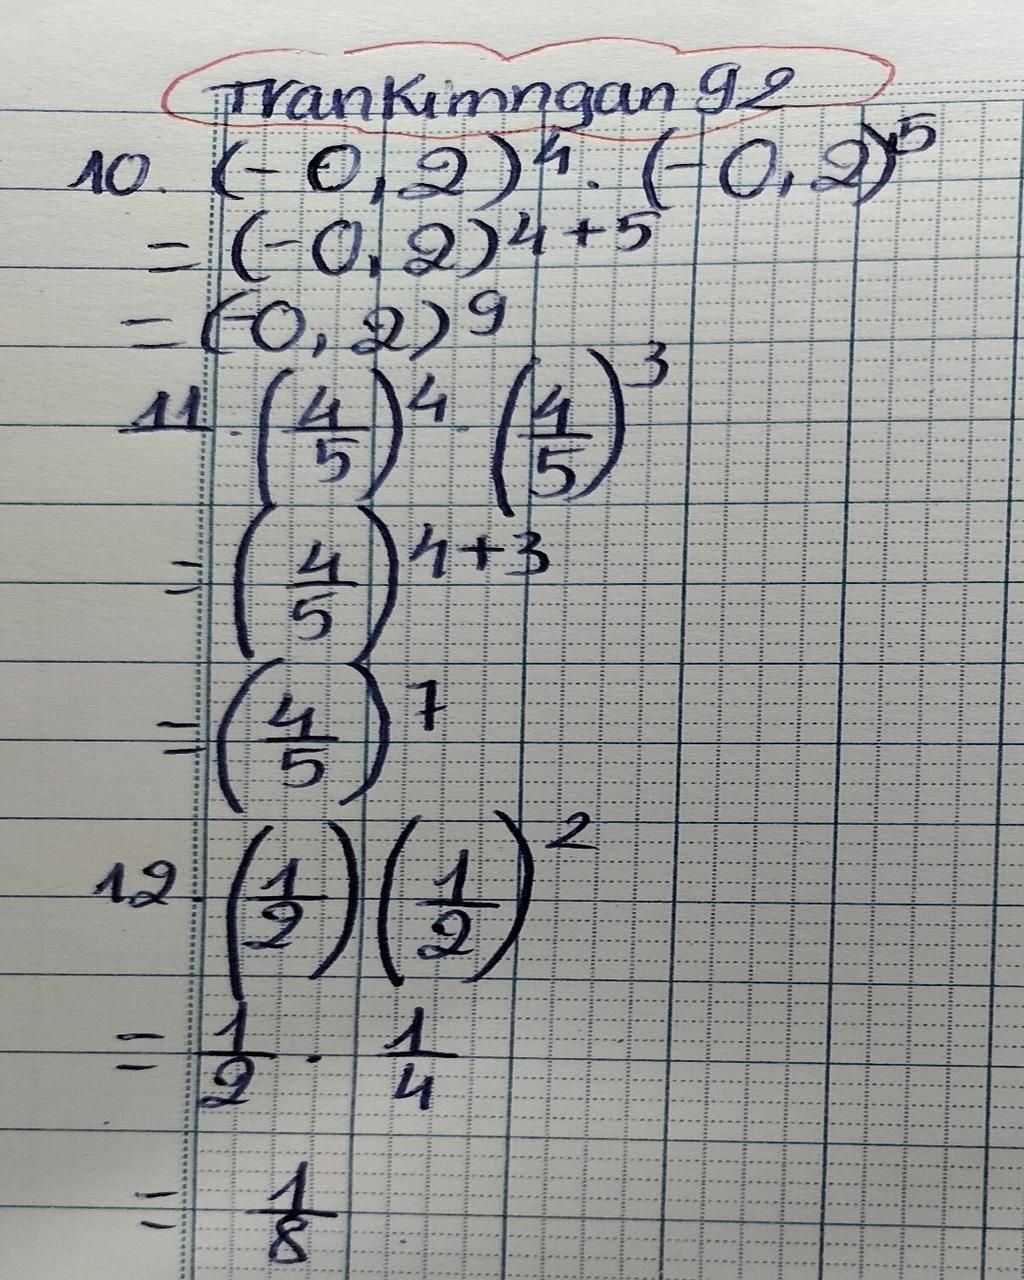 TranKimngan 92
10. (-0,2)⁴. (-0,2)⁵
= (-0,2)⁴⁺⁵
= (-0,2)⁹
11. (4/5)⁴ . (4/5)³
= (4/5)⁴⁺³
= (4/5)⁷
12. (1/2) (1/2)²
= 1/2 . 1/4
= 1/8